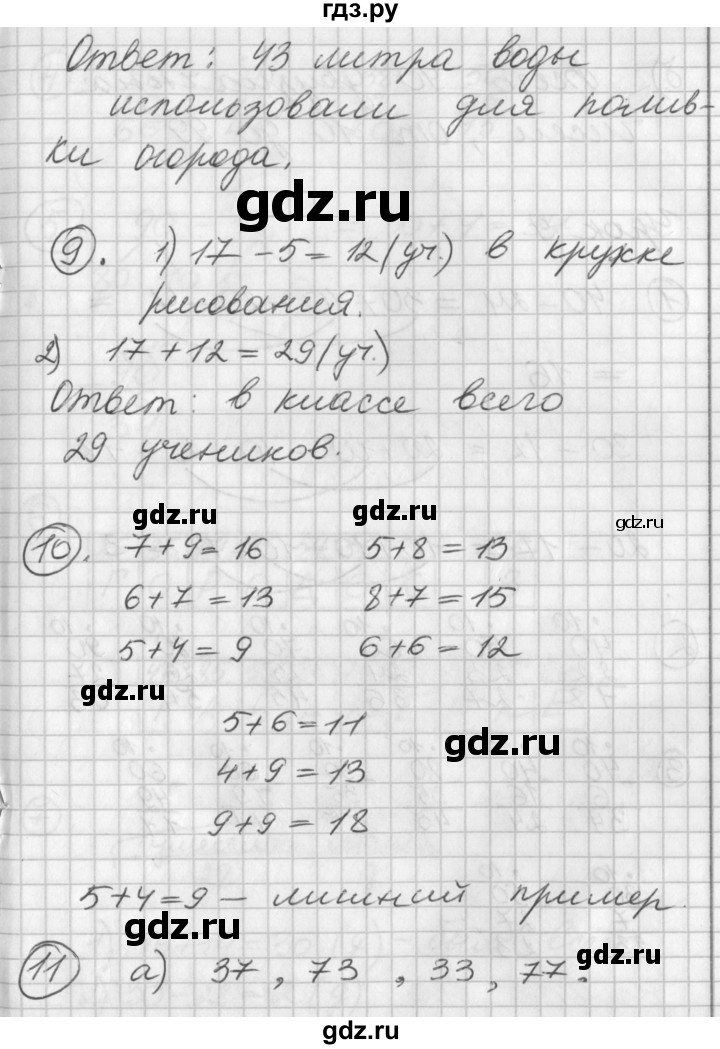 гдз.ру
Ответ: 43 литра воды
использовали для полив-
ки огорода.
gdz.ru
9. 1) 17 - 5 = 12 (уч.) в кружке
рисования.
2) 17 + 12 = 29 (уч.)
Ответ: в классе всего
29 учеников.
gdz.ru gdz.ru gdz.ru
10. 7 + 9 = 16 5 + 8 = 13
6 + 7 = 13 8 + 7 = 15
5 + 4 = 9 6 + 6 = 12
gdz.ru
5 + 6 = 11
gdz.ru
4 + 9 = 13
9 + 9 = 18
5 + 4 = 9 – лишний пример.
gdz.ru
gdz.ru
11 а) 37, 73, 33, 77.
gdz.ru